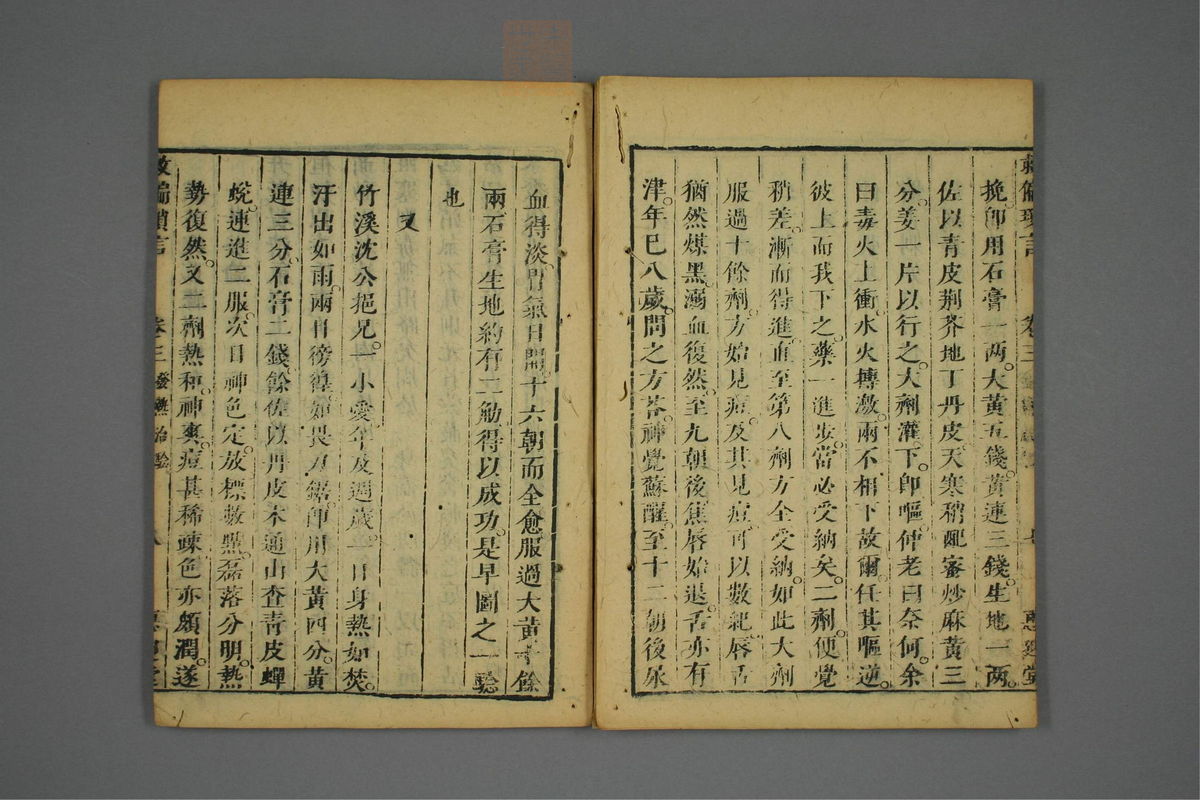 救偏瑣言 卷三
挽。卽用石膏一兩。大黃五錢。黃連三錢。生地一兩。
佐以青皮荆芥地丁丹皮天寒稍配蜜炒麻黃三
分。姜一片以行之。大劑灌下。卽嘔。仲老曰奈何。余
曰毒火上衝。水火摶激。兩不相下故爾。任其嘔逆。
彼上而我下之。藥一進步。當必受納矣。二劑。便覺
稍差。漸而得進。直至第八劑方全受納。如此大劑
服過十餘劑。方始見痘。及其見痘可以數紀。唇舌
猶然煤黑。溺血復然。至九朝後。焦唇始退。舌亦有
津。年巳八歲。問之方荅。神覺蘇醒。至十二朝後尿
血得淡。胃氣日開。十六朝而全愈。服過大黃十餘
兩。石膏生地約有二觔。得以成功。是早圖之一驗
也
又
竹溪沈公挹兄。一小愛。年及週歲。一日身熱如焚。
汗出如雨。兩目徬徨。如畏刀鋸。卽用大黃四分。黃
連三分。石膏二錢。餘佐以丹皮木通山查青皮蟬
蛻。連進二服。次日神色定。放標數點。磊落分明。熱
勢復然。又二劑。熱和。神爽。痘甚稀疎。色亦頗潤。遂
救偏瑣言 卷三 發藥治驗 八